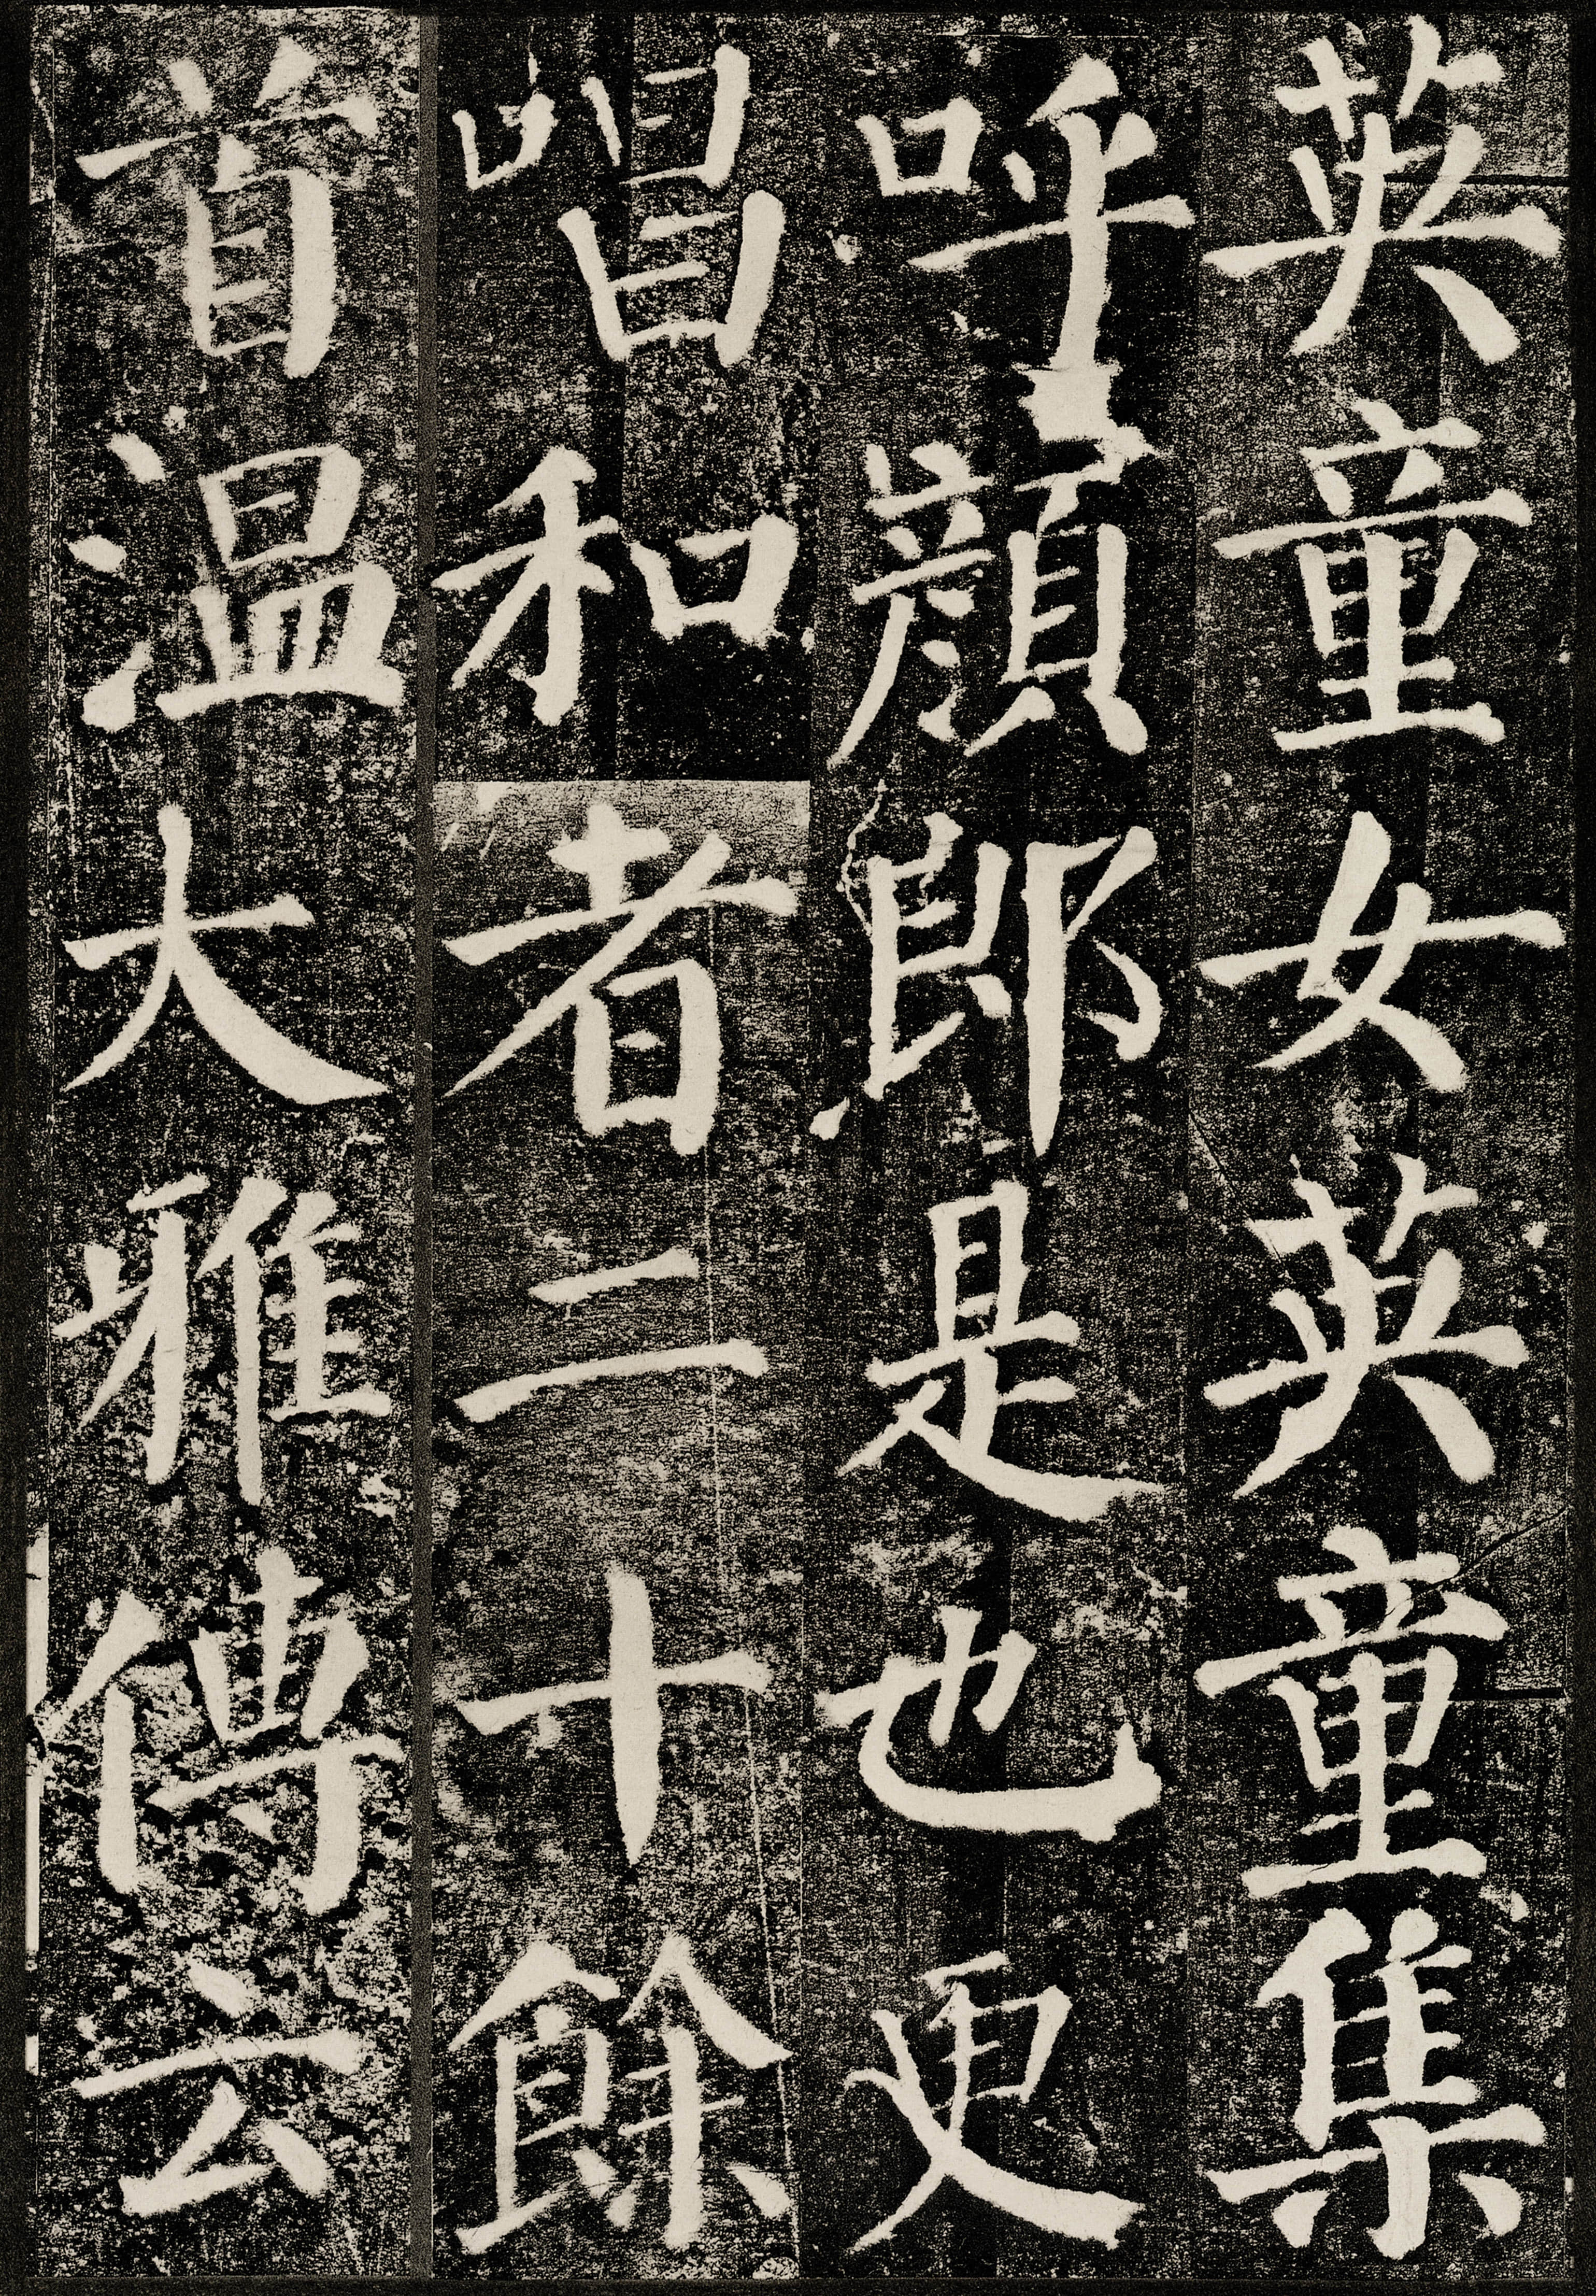 英童女英童集
呼顏郎是也更
唱和者二十餘
首溫大雅傳云